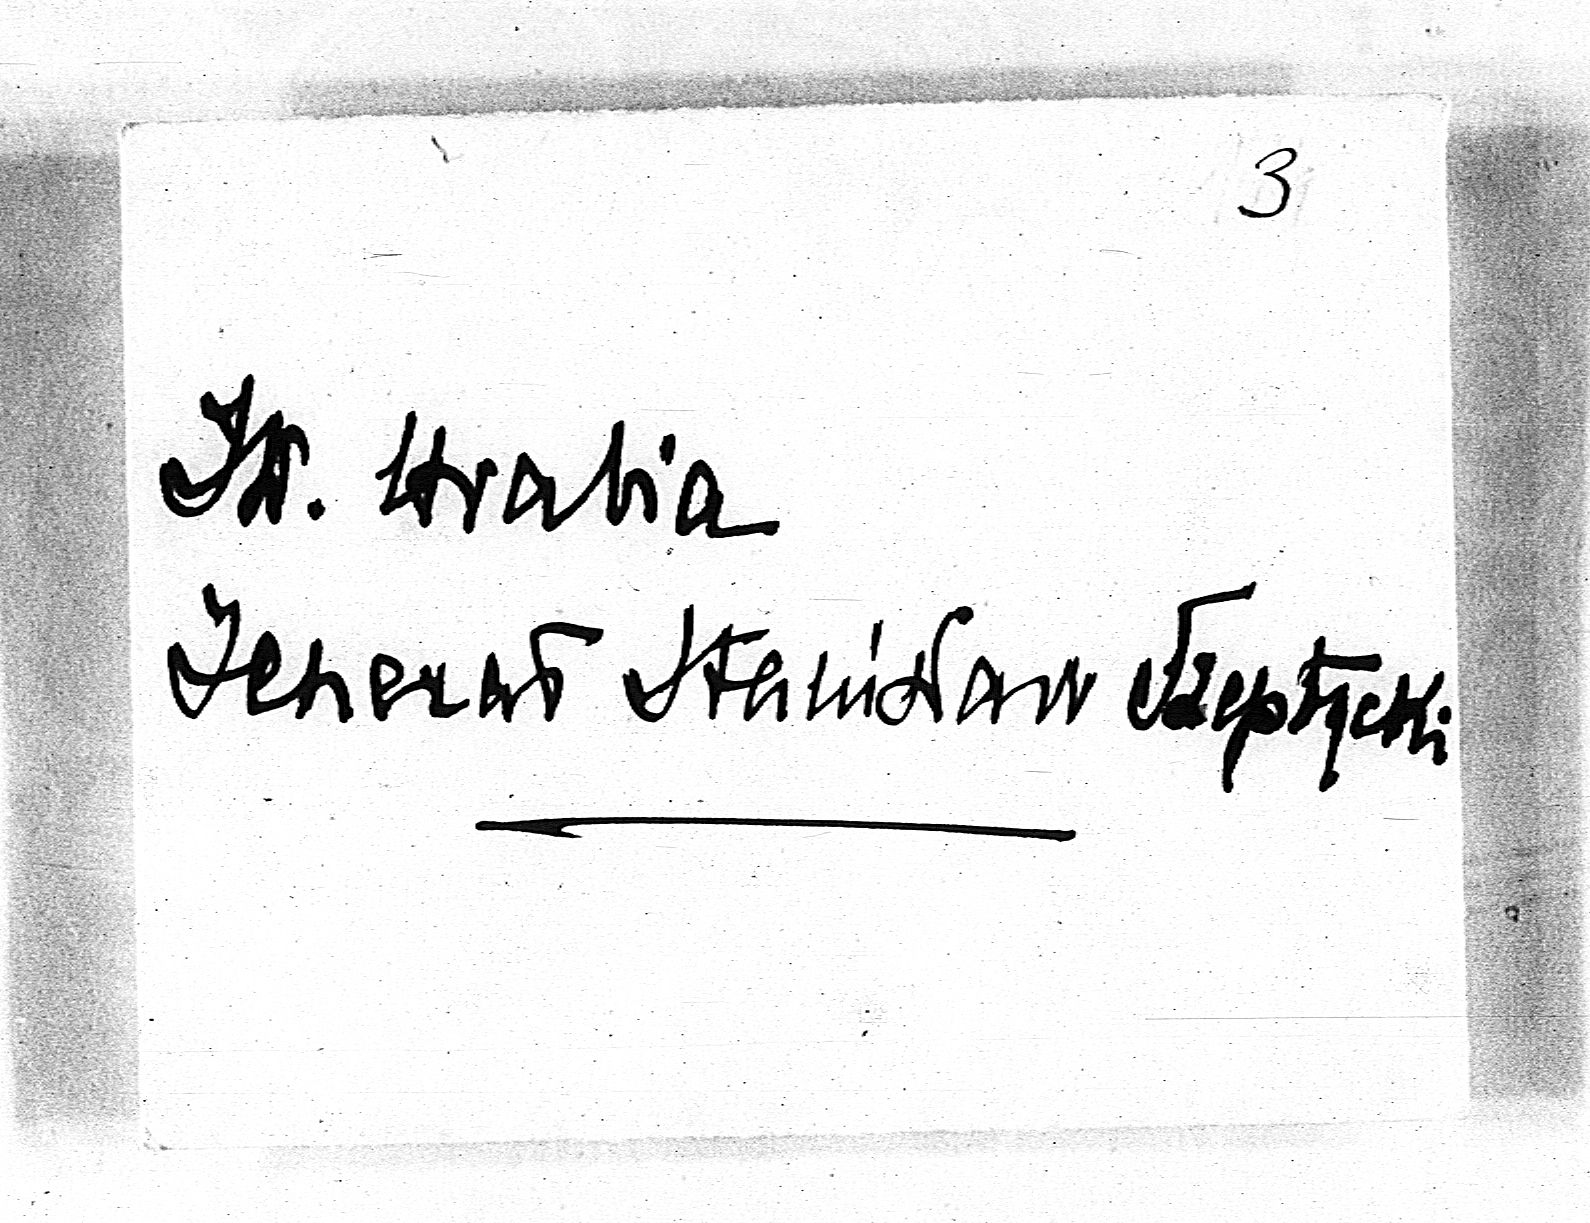 3
JW. Hrabia
Jenerał Stanisław Szeptycki